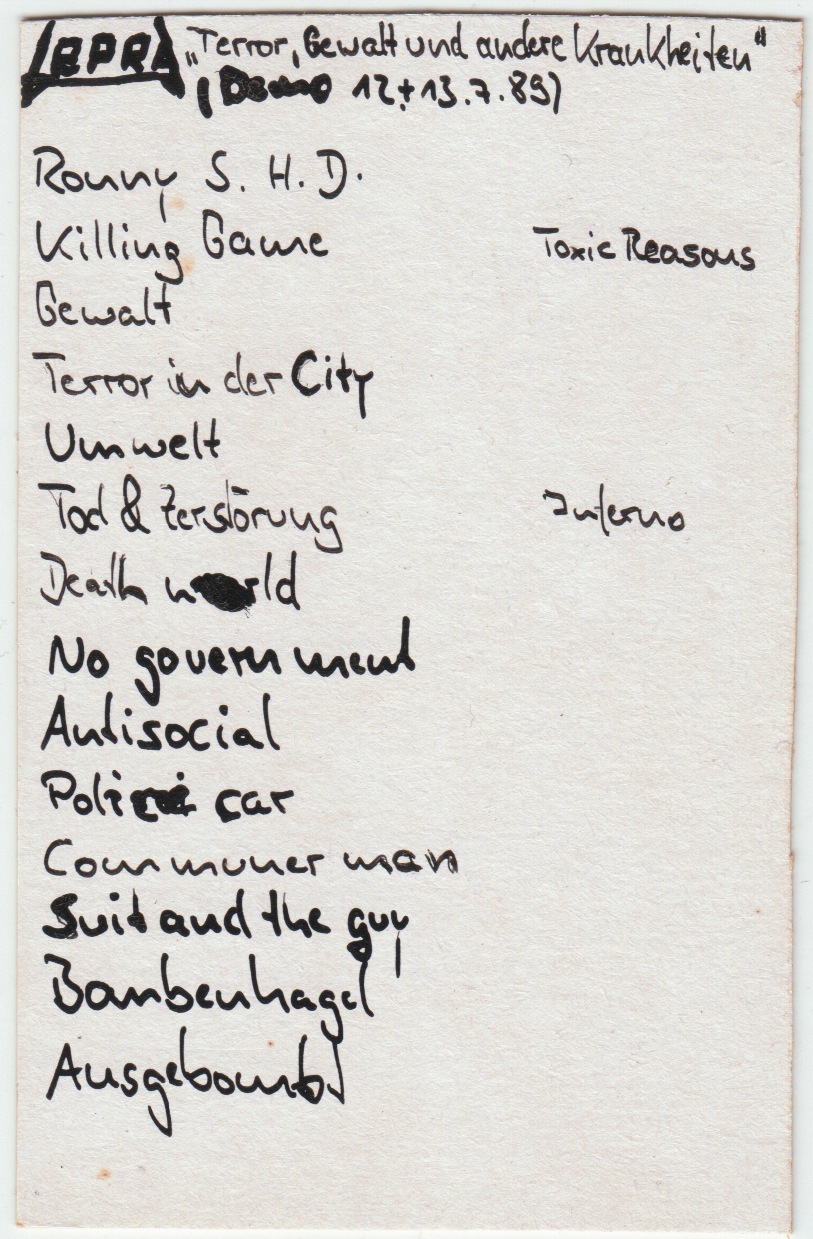 LEPRA „Terror, Gewalt und andere Krankheiten"
(Demo 12+13.7.89)
Ronny S. H. D.
Killing Game Toxic Reasons
Gewalt
Terror in der City
Umwelt
Tod & Zerstörung Inferno
Death world
No government
Antisocial
Police car
Communer man
Suit and the guy
Bombenhagel
Ausgebombt